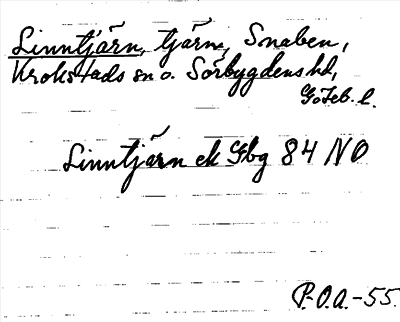 Linntjärn, tjärn, Snaben,
Krokstads sn o. Sörbygdens hd,
Göteb. l.
Linntjärn ek Gbg 84 NO
P.O.A.-55.